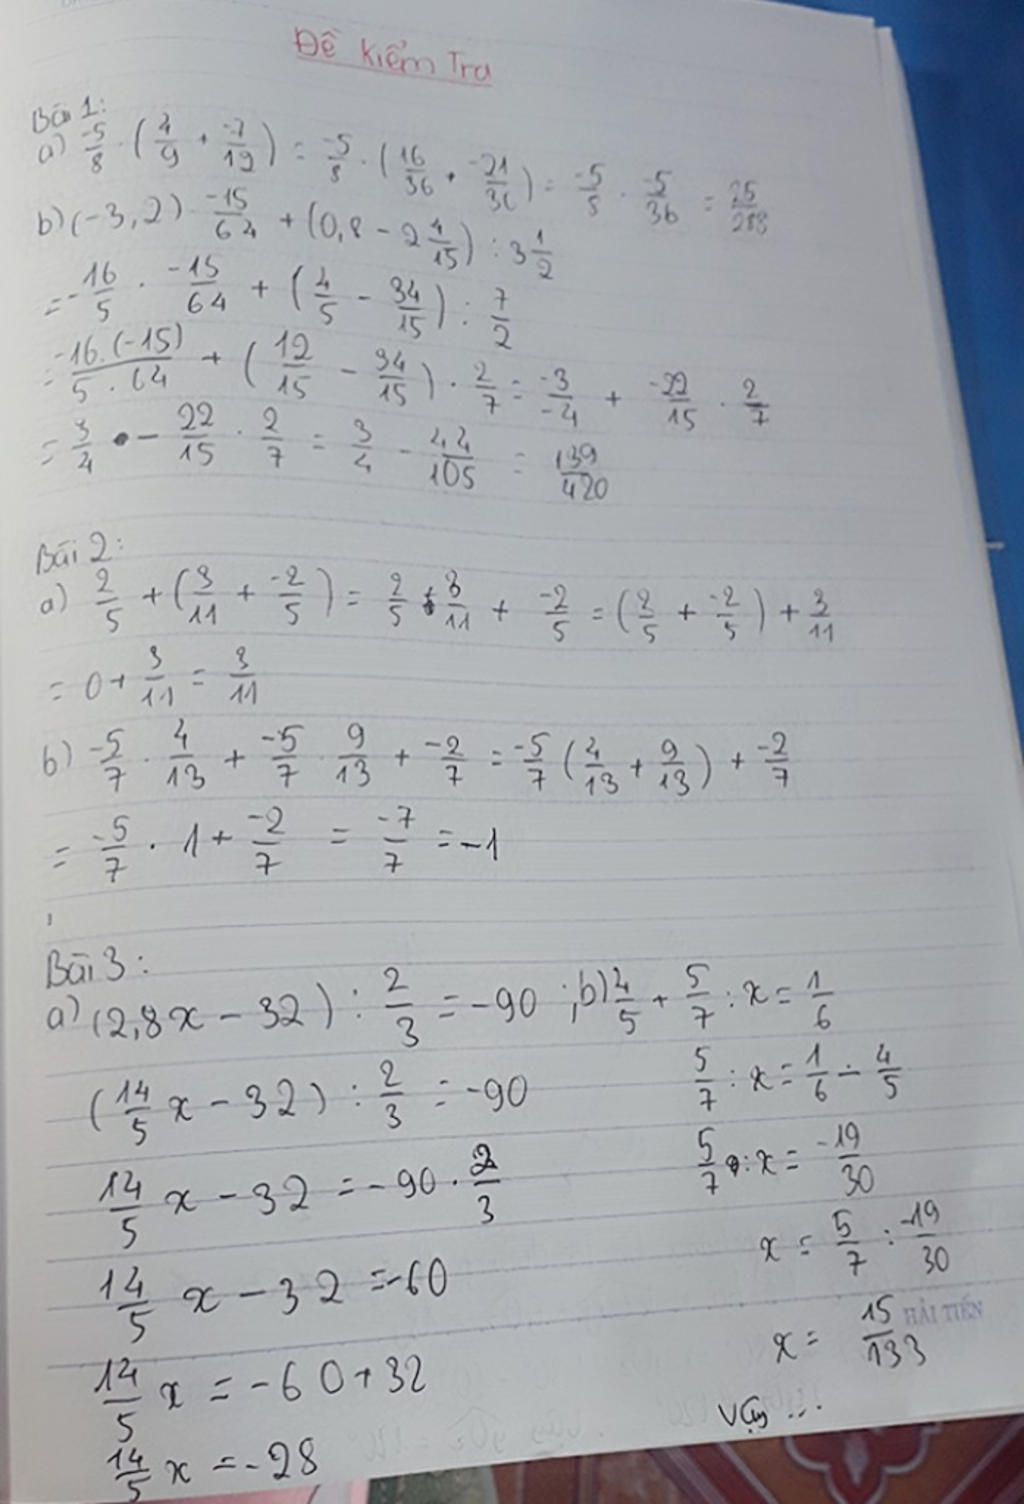 Đề Kiểm Tra
Bài 1:
a) -5/8 . (4/9 + -7/12) = -5/8 . (16/36 + -21/36) = -5/8 . -5/36 = 25/288
b) (-3,2) . -15/64 + (0,8 - 2 4/15) : 3 1/2
= -16/5 . -15/64 + (4/5 - 34/15) : 7/2
= -16.(-15)/5.64 + (12/15 - 34/15) . 2/7 = -3/-4 + -22/15 . 2/7
= 3/4 - 22/15 . 2/7 = 3/4 - 44/105 = 139/420
Bài 2:
a) 2/5 + (3/11 + -2/5) = 2/5 + 3/11 + -2/5 = (2/5 + -2/5) + 3/11
= 0 + 3/11 = 3/11
b) -5/7 . 4/13 + -5/7 . 9/13 + -2/7 = -5/7 (4/13 + 9/13) + -2/7
= -5/7 . 1 + -2/7 = -7/7 = -1
Bài 3:
a) (2,8x - 32) : 2/3 = -90 ; b) 4/5 + 5/7 : x = 1/6
(14/5 x - 32) : 2/3 = -90
5/7 : x = 1/6 - 4/5
14/5 x - 32 = -90 . 2/3
5/7 : x = -19/30
14/5 x - 32 = -60
x = 5/7 : -19/30
HẢI TIẾN
14/5 x = -60 + 32
x = 15/133
14/5 x = -28
Vậy ...